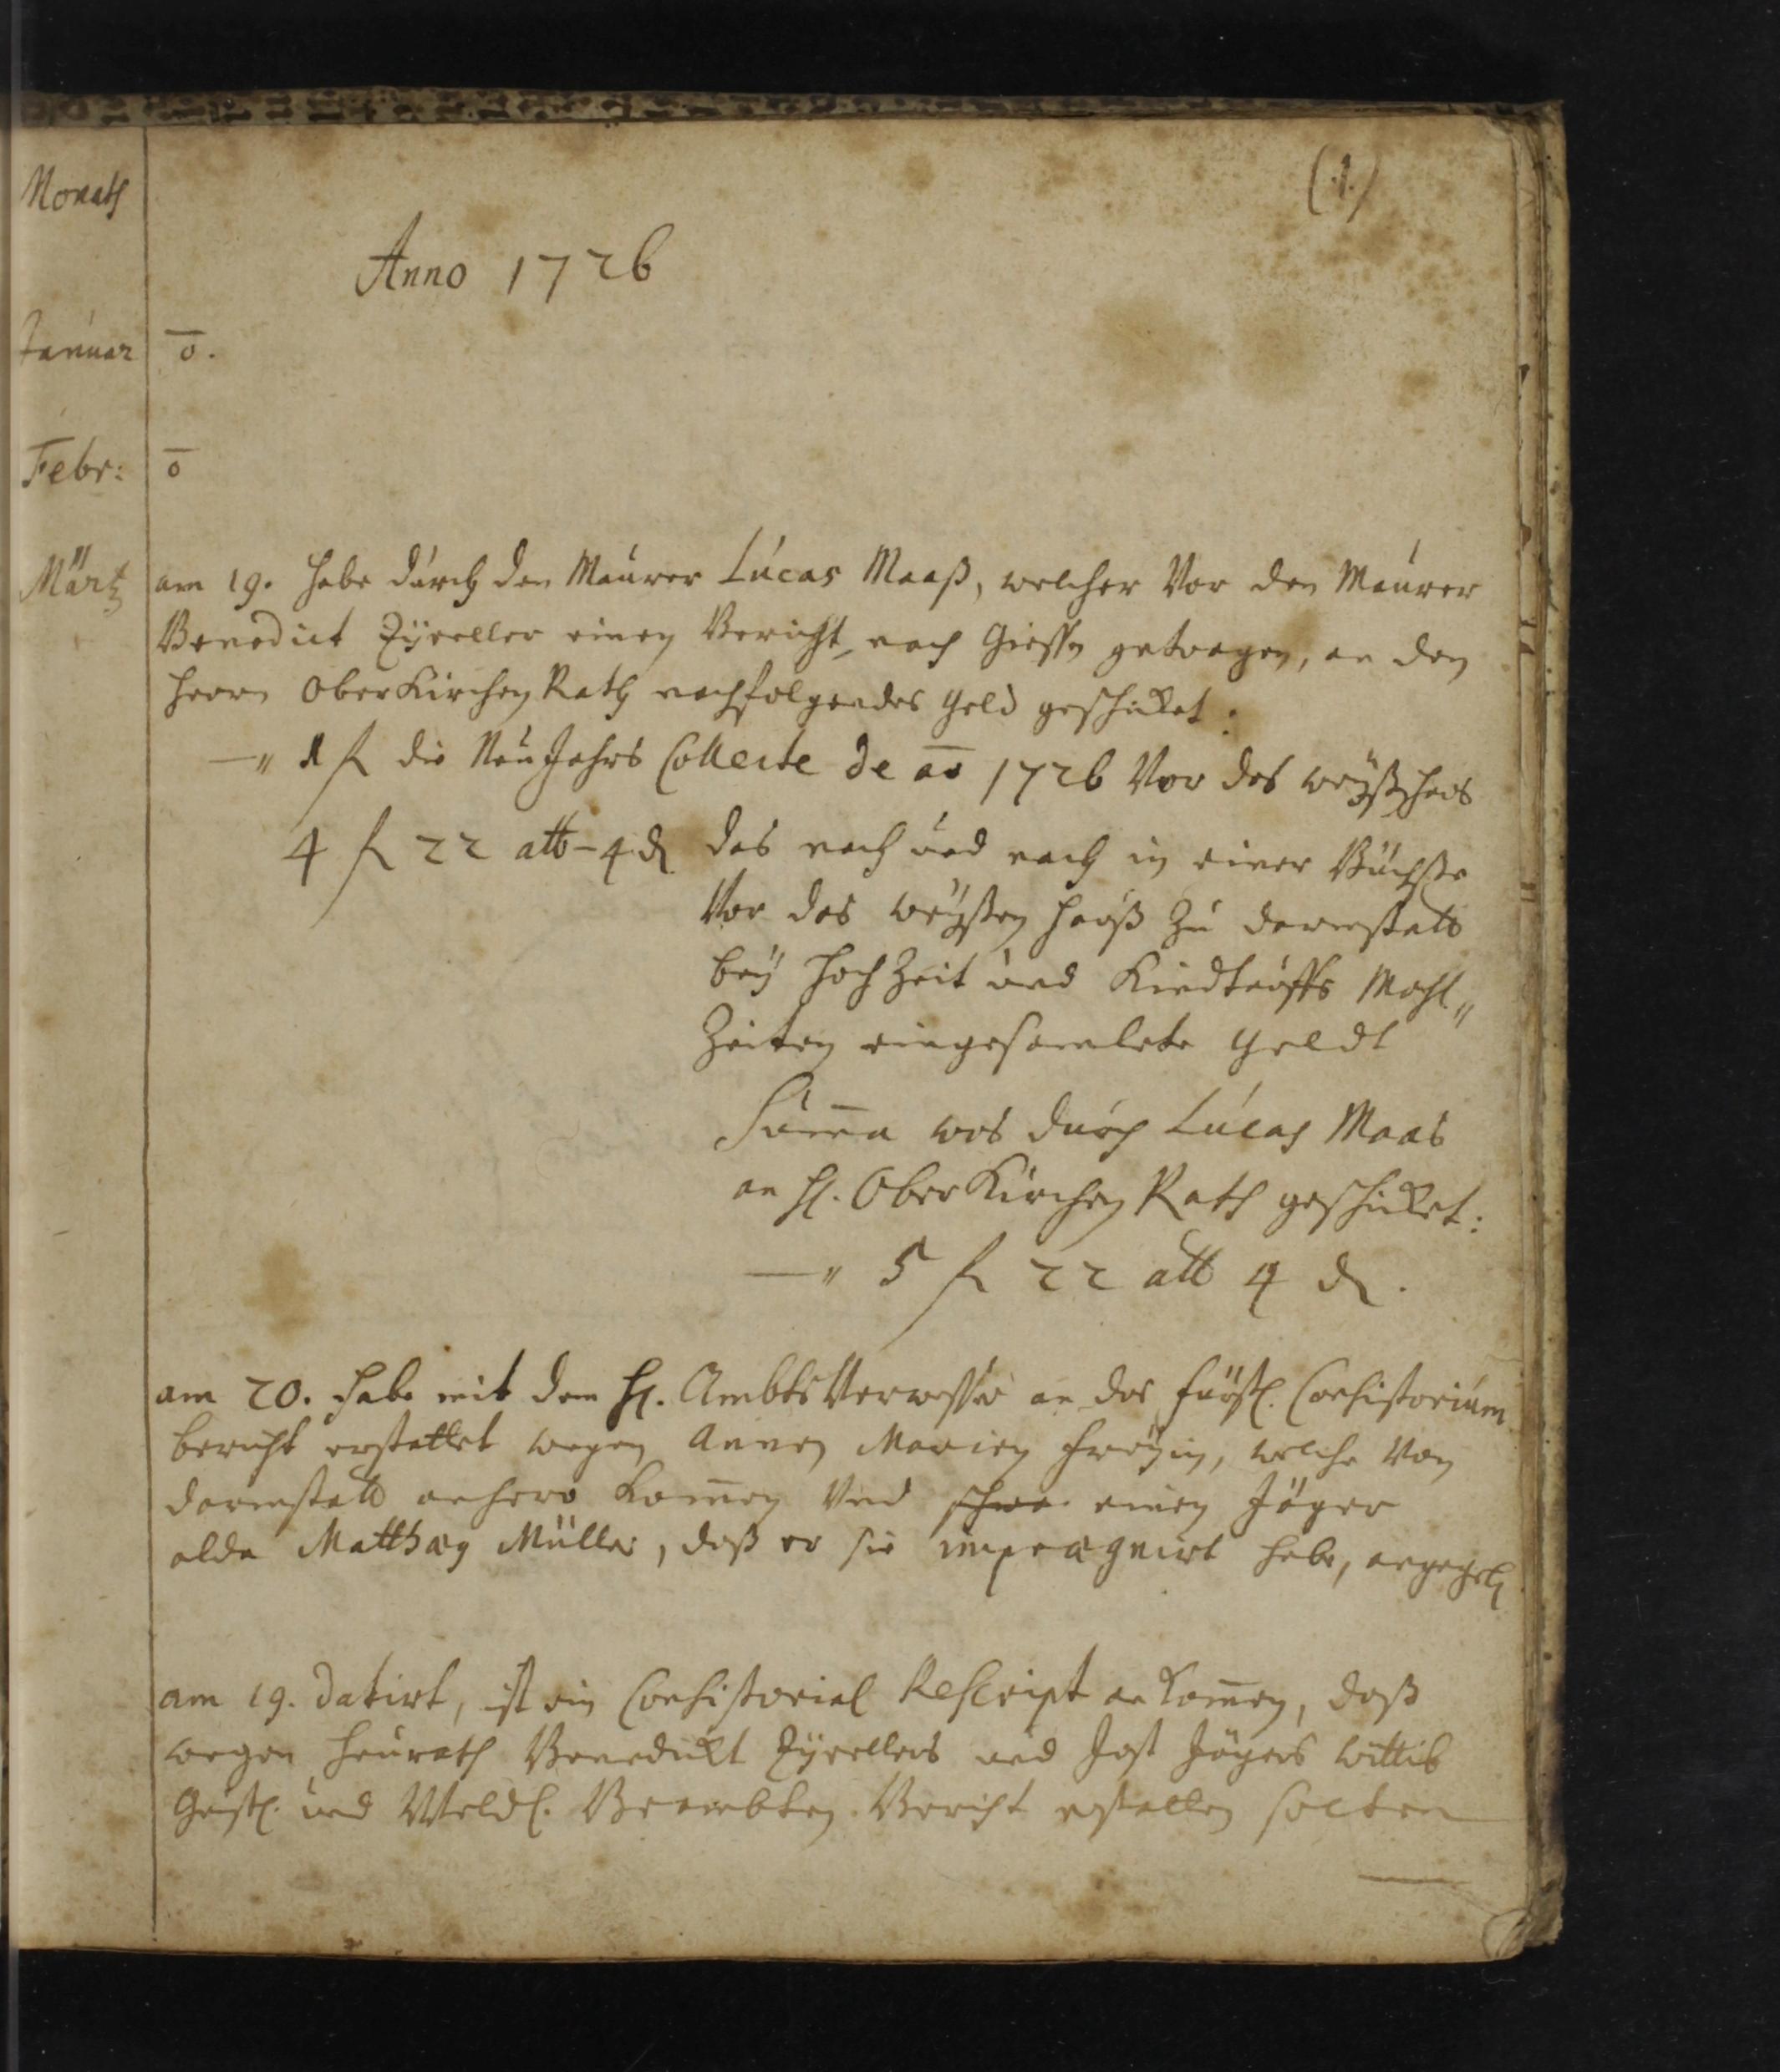 (1.)
Monath
Anno 1726
Januar o.
Febr: o
Märtz am 19. habe durch den Maurer Lucas Maaß, welcher Vor den Maurer
Benedict einen Bericht nach Giessen getragen, an den
Herrn OberKirchen Rath nachfolgendes Geld geschicket:
—„ 1 fl die NeuJahrs Collecte de ao 1726 Vor das
4 fl 22 alb – 4 d das nach und nach in einer Büchße
Vor das weyßen hauß zu darmstatt
bey HochZeit und Kindtauffs Mahl„
Zeiten eingesamlete Geldt
Suma was durch Lucas Maas
an H. OberKirchen Rath geschicket:
—„ 5 fl 22 alb 4 d.
am 20. habe mit dem H. Ambts Verweßer an das fürstl. Consistorium
bericht erstattet wegen Annen Marien, welche Von
darmstatt anhero komen Und einen Jäger
alda Matthæy Müller, daß er sie impraegnirt habe, angegeben
am 19. datirt, ist ein Consistorial Rescript ankomen, daß
wegen heurath Benedickt und Jost Jägers wittib
Geistl. und Weldl. Beambten Bericht erstatten solten